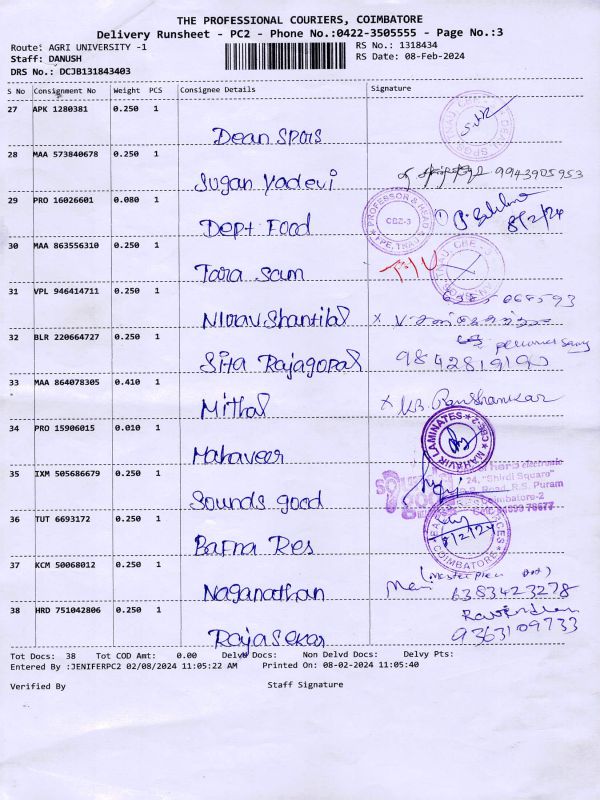 THE PROFESSIONAL COURIERS, COIMBATORE
Delivery Runsheet - PC2 - Phone No.:0422-3505555 - Page No.:3
Route: AGRI UNIVERSITY -1 RS No.: 1318434
Staff: DANUSH RS Date: 08-Feb-2024
DRS No.: DCJB131843403
S No Consignment No Weight PCS Consignee Details Signature
27 APK 1280381 0.250 1
Dean Spors
28 MAA 573840678 0.250 1
Sugan Yadevi 9943905953
29 PRO 16026601 0.080 1
PROFESSOR & HEAD
CBE-3
Dept Food 8/2/24
30 MAA 863556310 0.250 1
Tara Sam
31 VPL 946414711 0.250 1
Nirav Shantilal
32 BLR 220664727 0.250 1
Sita Rajagopal
33 MAA 864078305 0.410 1
Mithal
34 PRO 15906015 0.010 1
MAHAVIR LAMINATES CBE-2
Mahaveer
35 IXM 505686679 0.250 1
electronic
24, "Shirdi Square"
Road, R.S. Puram
Coimbatore-2
Sounds good
36 TUT 6693172 0.250 1
8/2/24
COIMBATORE
Bafna Res
37 KCM 50068012 0.250 1
Naganathan 6383423278
38 HRD 751042806 0.250 1
Rajasekar 9363109733
Tot Docs: 38 Tot COD Amt: 0.00 Delvd Docs: Non Delvd Docs: Delvy Pts:
Entered By :JENIFERPC2 02/08/2024 11:05:22 AM Printed On: 08-02-2024 11:05:40
Verified By Staff Signature